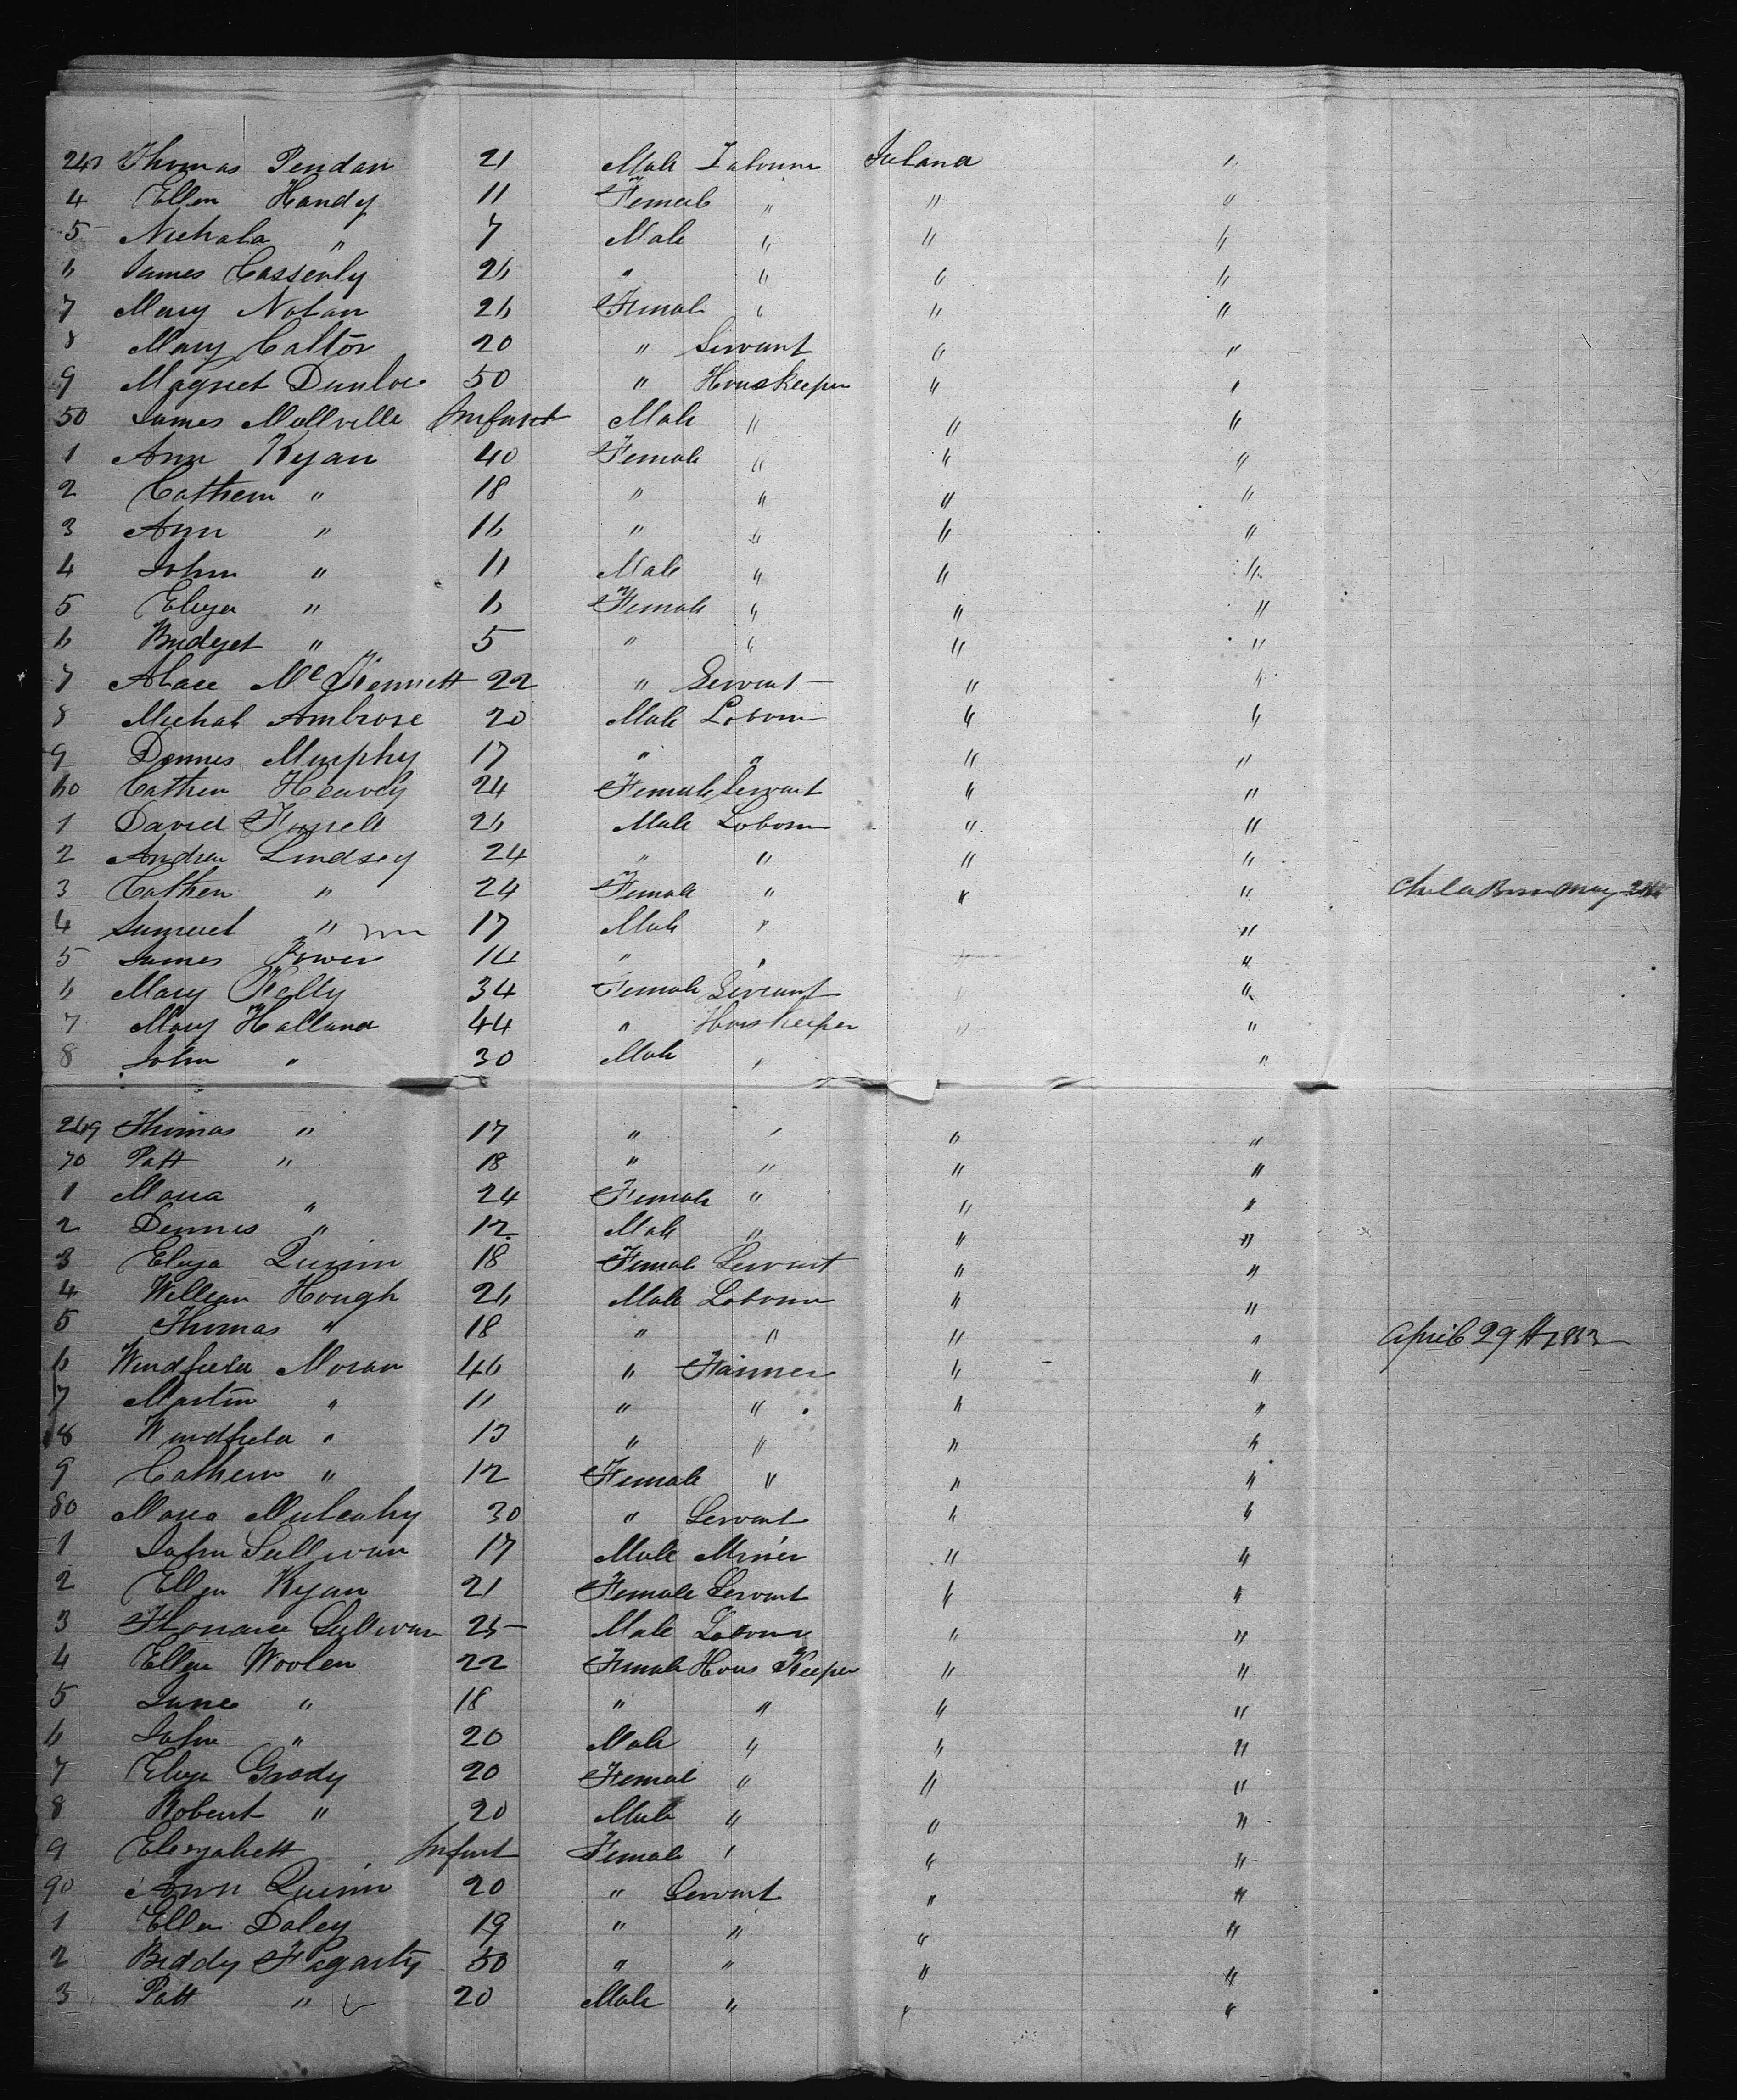 243 Thomas Pendan 21 Male Labourer Ireland "
4 Ellen Handy 11 Female " " "
5 Nichola " 7 Male " " "
6 James Cassenly 26 " " " "
7 Mary Nolan 26 Female " " "
8 Mary Caltor 20 " Servant " "
9 Magret Dunloe 50 " Houskeeper " "
50 James Mellville Infant Male " " "
1 Ann Ryan 40 Female " " "
2 Cathern " 18 " " " "
3 Ann " 16 " " " "
4 John " 11 Male " " "
5 Eliza " 6 Female " " "
6 Bridget " 5 " " " "
7 Alace Mc Kennett 22 " Servant " "
8 Michal Ambrose 20 Male Labour " "
9 Dennes Murphy 17 " " " "
60 Cathern Heavey 24 Female Servant " "
1 David Farrell 26 Male Labour " "
2 Andrew Lindsey 24 " " " "
3 Cathern " 24 Female " " " Born May
4 Samuel " 17 Male " "
5 James Power 14 " " " "
6 Mary Kelly 34 Female Servant " "
7 Mary Halland 44 " Hous Keeper " "
8 John " 30 Male " "
269 Thomas " 17 " " " "
70 Patt " 18 " " " "
1 Maria " 24 Female " " "
2 Dennes " 12 Male " " "
3 Eliza Quinn 18 Female Servant " "
4 William Hough 26 Male Labour " "
5 Thomas " 18 " " " " April 29th
6 Windfield Moran 46 " Farmer " "
7 Martin " 11 " " " "
8 Windfield " 13 " " " "
9 Cathern " 12 Female " " "
80 Maria Mulcahy 30 " Servant " "
1 John Sullivan 17 Male Miner " "
2 Ellen Ryan 21 Female Servant " "
3 Sullivan 25 Male Labour " "
4 Ellen Woolen 22 Female Hous Keeper " "
5 Jane " 18 " " " "
6 John " 20 Male " " "
7 Eliza Grady 20 Female " " "
8 Robert " 20 Male " " "
9 Elezabett Infant Female " " "
90 Ann Quinn 20 " Servant " "
1 Ellen Daley 19 " " " "
2 Biddy Fogarty 50 " " " "
3 Patt " 20 Male " " "